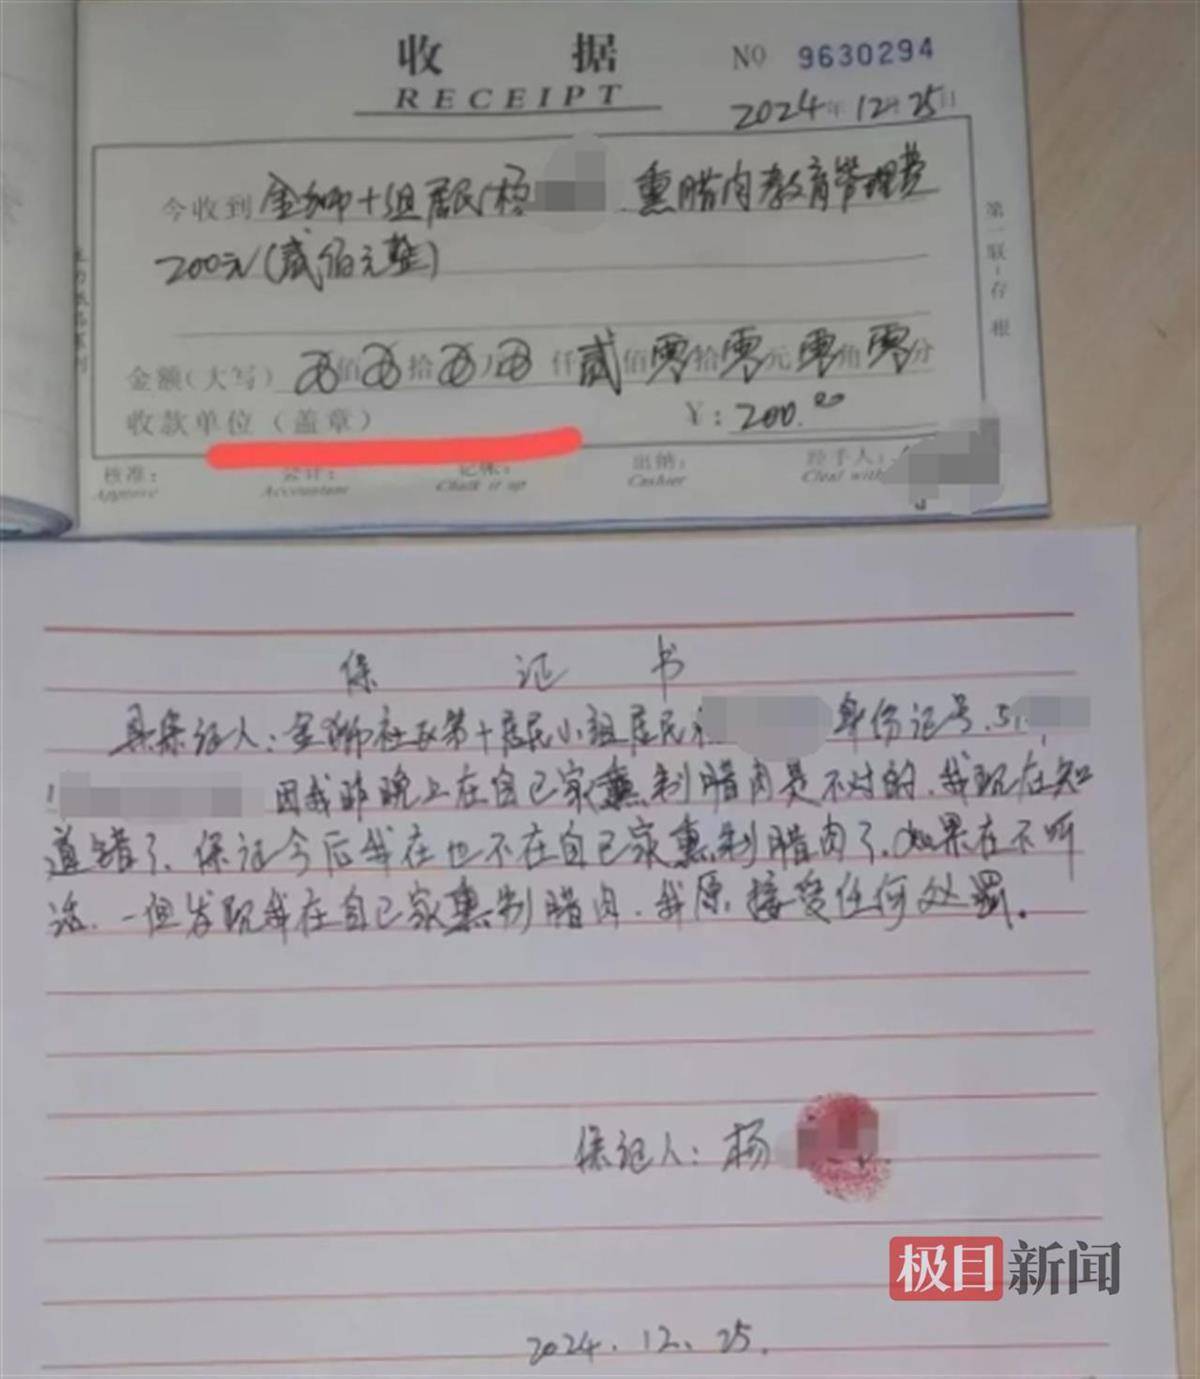 收 据
RECEIPT
NO 9630294
2024年12月25日
今收到 金狮十组居民杨 熏腊肉教育管理费
200元(贰佰元整)
金额(大写) 佰 拾 万 仟贰佰零拾零元零角零分
收款单位(盖章) ¥:200.00
核准: 会计: 记帐: 出纳: 经手人:
Approve Accountant Chalk it up Cashier Cleal with
第一联:存根
保 证 书
具保证人:金狮社区第十居民小组居民 身份证号.51
因我昨晚上在自己家熏制腊肉是不对的.我现在知
道错了、保证今后我在也不在自己家熏制腊肉了、如果在不听
话、一但发现我在自己家熏制腊肉.我原接受任何处罚。
保证人:杨
极目新闻
2024.12.25.